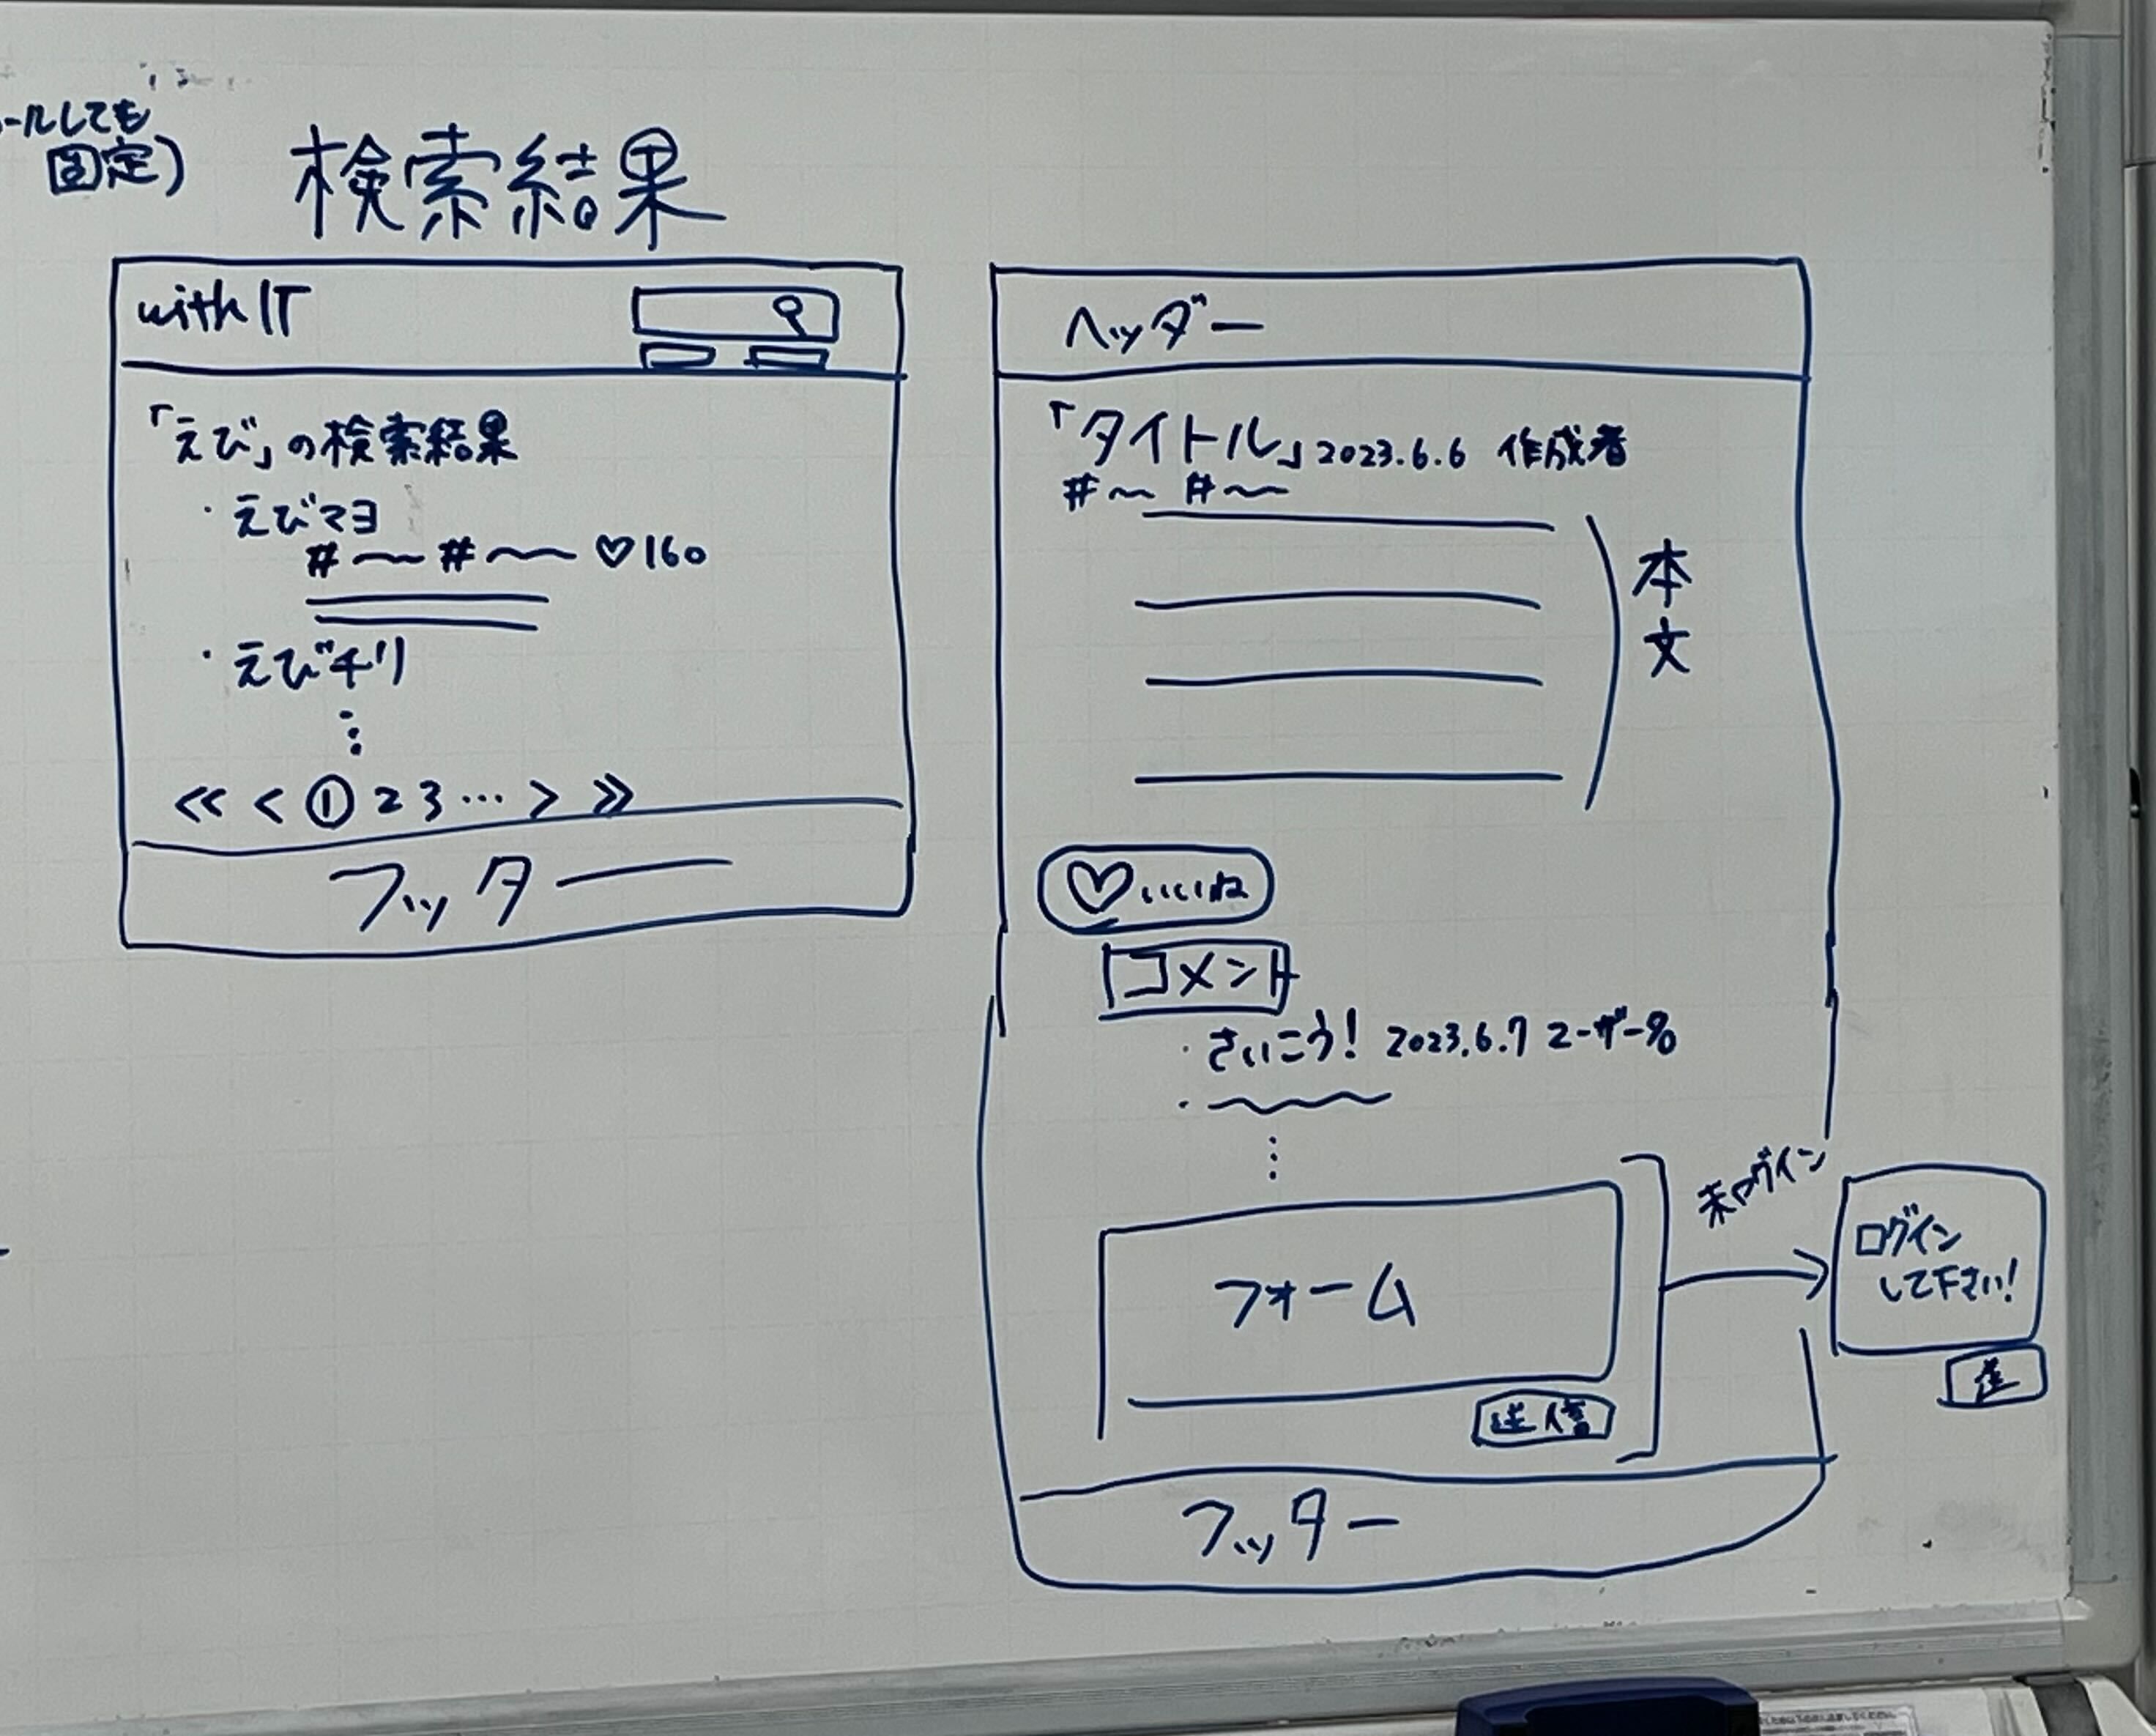 ールしても
固定)
検索結果
with IT
「えび」の検索結果
・えびマヨ
#〜 #〜 ♡160
・えびチリ
⋮
<< < ① 2 3 … > >>
フッター
ヘッダー
「タイトル」2023.6.6 作成者
#〜 #〜
本文
♡いいね
コメント
・さいこう! 2023.6.7 ユーザー名
・〜
⋮
フォーム
送信
未ログイン
ログイン
して下さい!
フッター